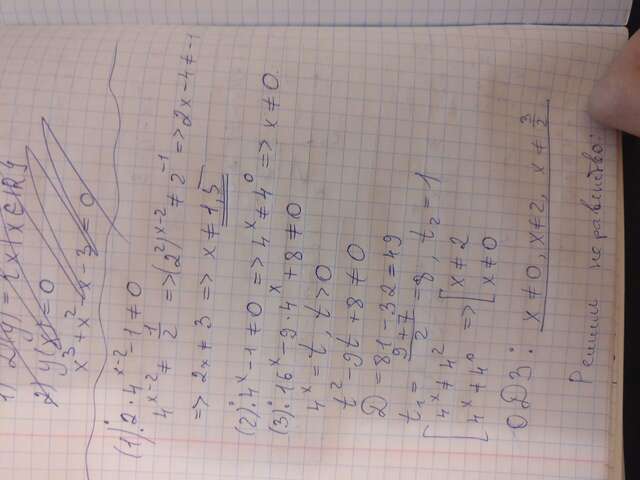 1) D(y) = {x | x ∈ R}
2) y(x) = 0
x³ + x² - x - 3 = 0
(1): 2·4^(x-2) - 1 ≠ 0
4^(x-2) ≠ 1/2 => (2²)^(x-2) ≠ 2^(-1) => 2x - 4 ≠ -1
=> 2x ≠ 3 => x ≠ 1,5
(2): 4^x - 1 ≠ 0 => 4^x ≠ 4^0 => x ≠ 0.
(3): 16^x - 9·4^x + 8 ≠ 0
4^x = t, t > 0
t² - 9t + 8 ≠ 0
D = 81 - 32 = 49
t₁ = (9+7)/2 = 8, t₂ = 1
[4^x ≠ 4² => [x ≠ 2
[4^x ≠ 4^0 [x ≠ 0
ОДЗ: x ≠ 0, x ≠ 2, x ≠ 3/2
Решим неравенство: